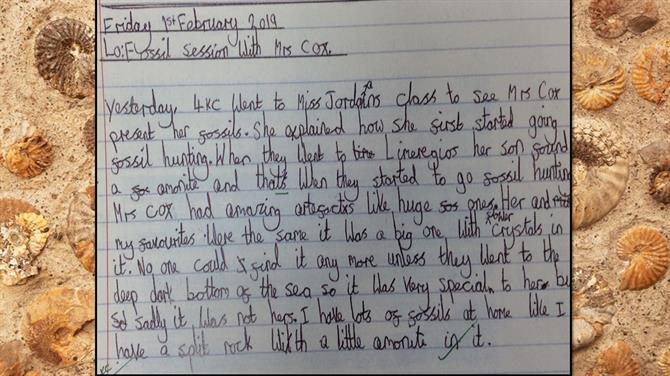 Friday 1st February 2019
Lo: Fossil session with Mrs Cox.
Yesterday, 4KC went to Miss Jordans class to see Mrs Cox
present her fossils. She explained how she first started going
fossil hunting. When they went to Limeregios her son found
a amonite and that's when they started to go fossil hunting
Mrs Cox had amazing artefactis like huge ones. Her and
my favourites were the same it was a big one with flower crystals in
it. No one could find it any more unless they went to the
deep dark bottom of the sea so it was very special to her bu
sadly it was not hers. I have lots of fossils at home like I
have a split rock with a little amonite in it.